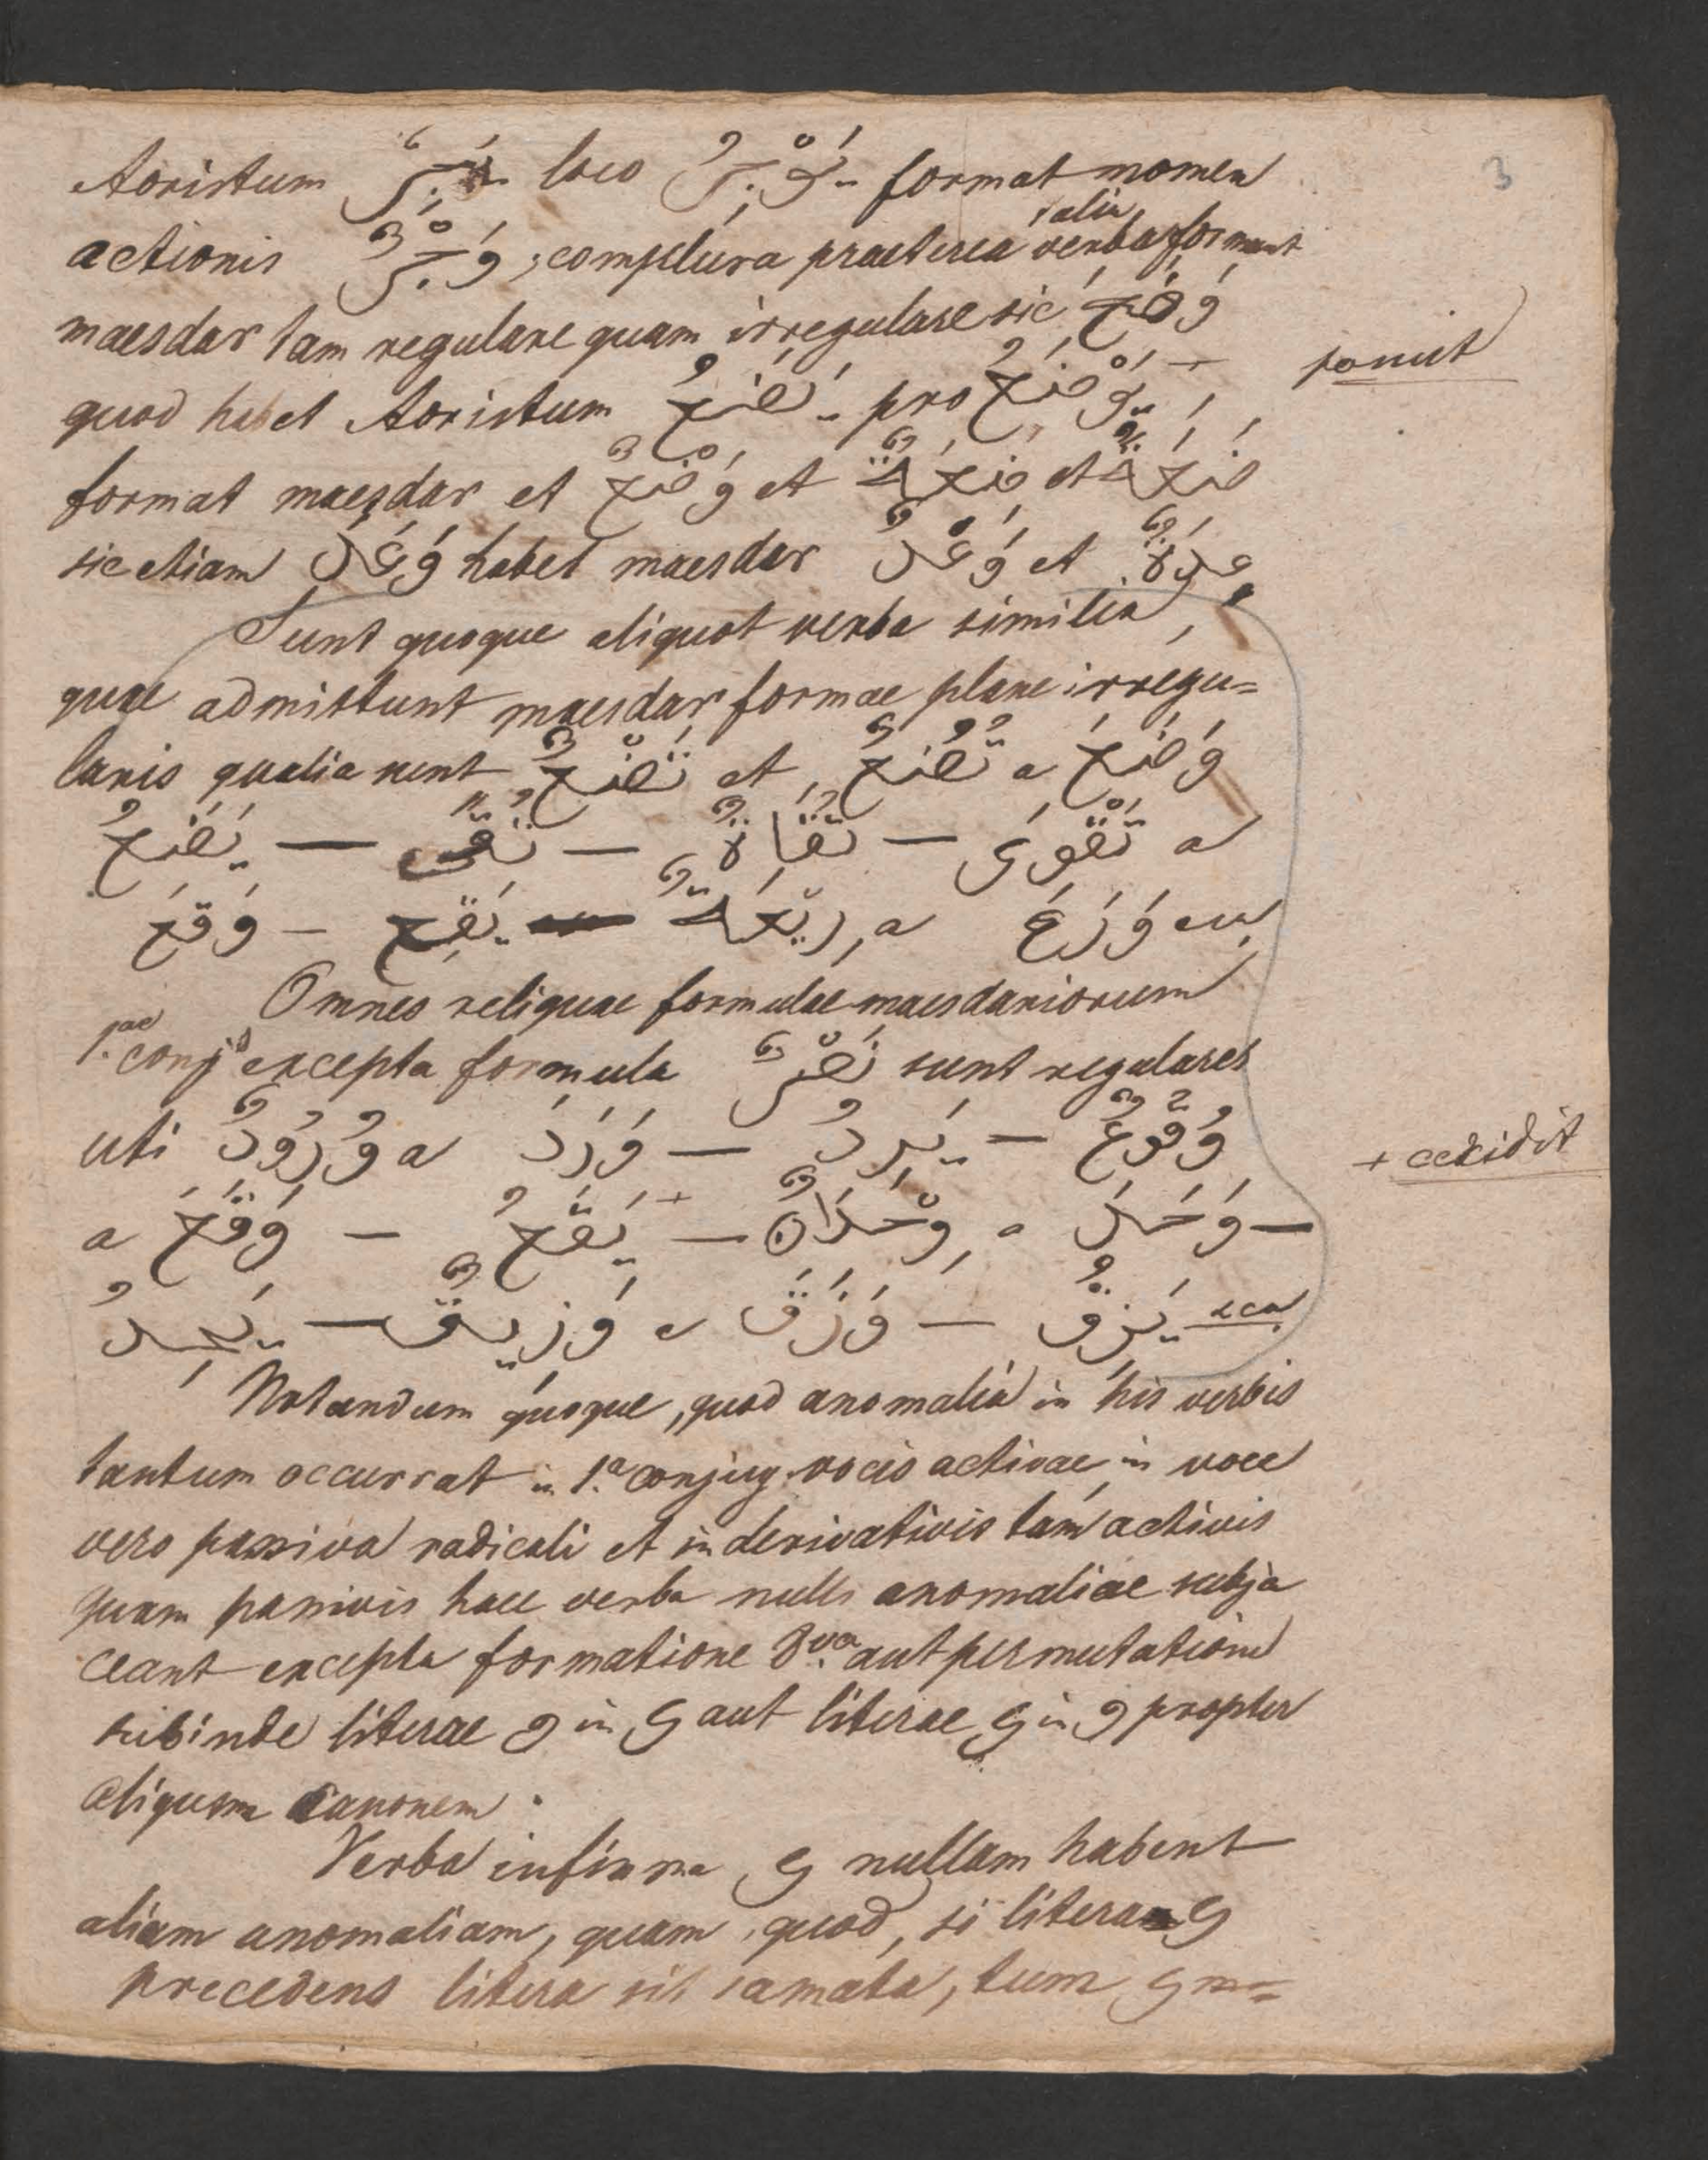 3
Aoristum يَجِرُ loco يَوْجِرُ format nomen
actionis وَجْرٌ; complura praeterea verba alia formant
maesdar tam regulare quam irregulare sic وَضَعَ
quod habet Aoristum يَضَعُ pro يَوْضَعُ +
ponit
format maesdar et وَضْعٌ et ضَعَةٌ et ضِعَةٌ
sic etiam وَعَدَ habet maesdar وَعْدٌ et عِدَةٌ
Sunt quoque aliquot verba similia,
quae admittunt maesdar formae plane irregu=
laris qualia sunt تَضْعٌ et تُضُعٌ a وَضَعَ
يَضَعُ — تُقًى — تُقَاةٌ — تَقْوَى a
وَقَعَ — يَقَعُ — رِيْعَةٌ a وَرَعَ
Omnes reliquae formulae maesdariorum
1.ae conj excepta formula نَصْرٌ sunt regulares
uti وُرُودٌ a وَرَدَ — يَرِدُ — وُقُوعٌ
a وَقَعَ — يَقَعُ + — وِحْدَانٌ a وَحَدَ —
+ accidit
يَحِدُ — وَزِيقٌ a وَزَقَ — يَزِقُ
Notandum quoque, quod anomalia in his verbis
tantum occurrat in 1.a conjug. vocis activae, in voce
vero passiva radicali et in derivativis tam activis
quam passivis haec verba nulli anomaliae subja
ceant excepta formatione 8va aut permutatione
subinde literae و in ي aut literae ي in و propter
aliquem canonem.
Verba infirma ي nullam habent
aliam anomaliam, quam quod, si literam ي
precedens litera sit damata, tum ي m=